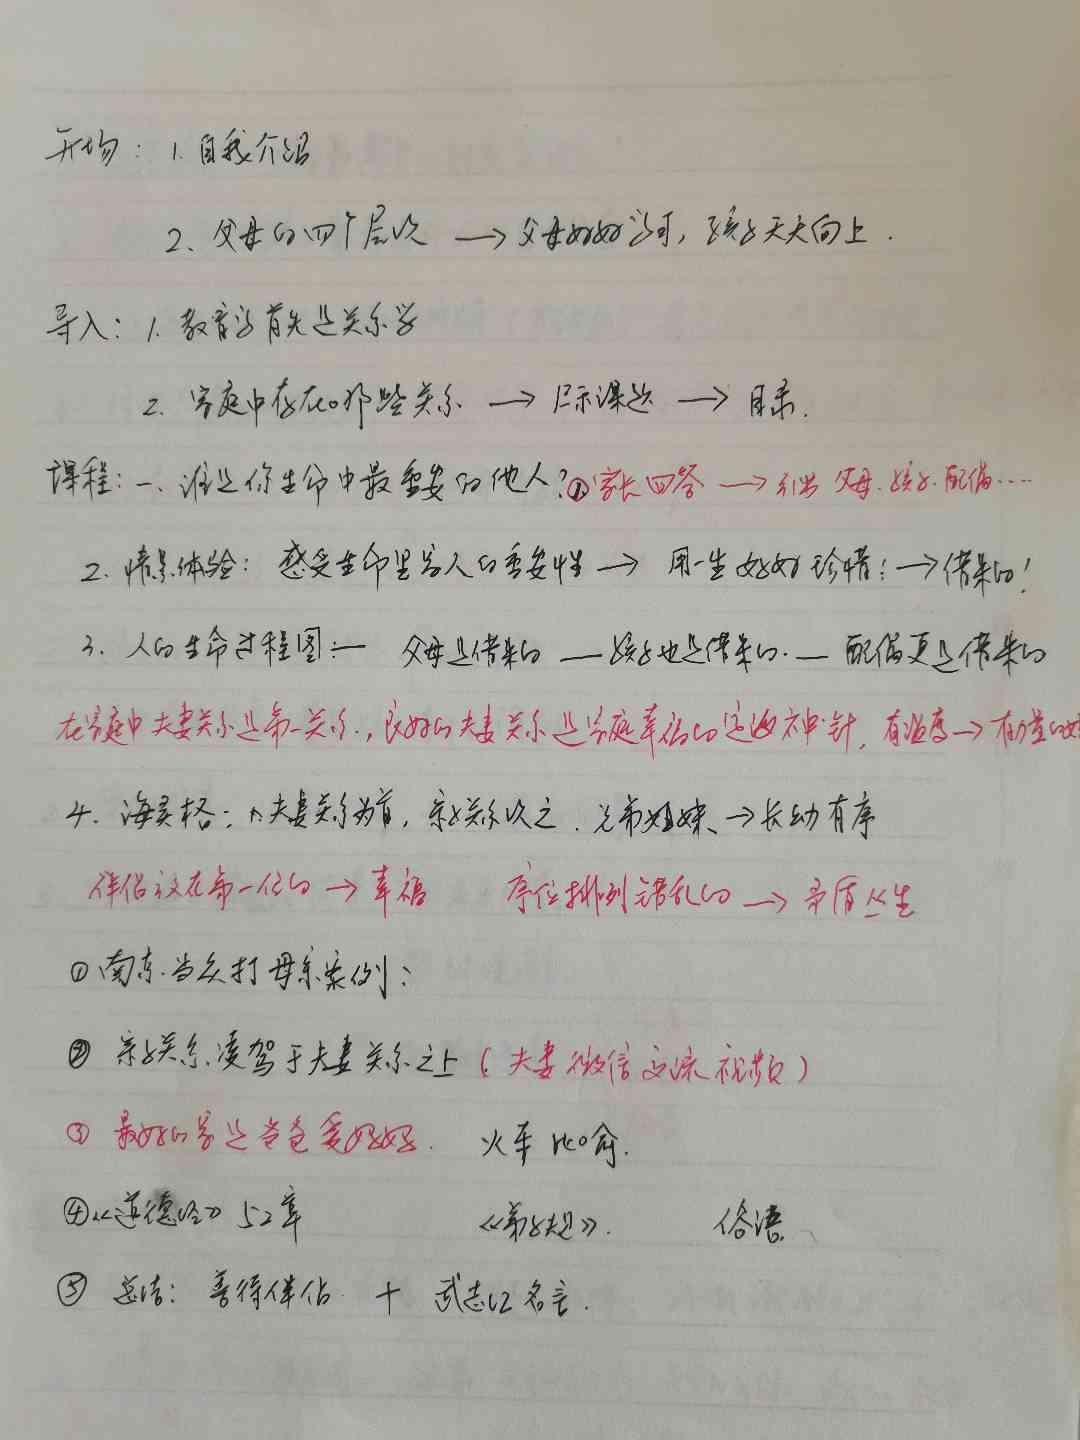 开场：1.自我介绍
2、父母的四个层次 → 父母好好学习，孩子天天向上.
导入：1.教育学首先是关系学
2.家庭中存在哪些关系 → 启示课题 → 目录.
课程：一、谁是你生命中最重要的他人？①家长回答 → 引出 父母.孩子.配偶……
2.情景体验：感受生命里家人的重要性 → 用一生好好珍惜：→ 借来的！
3.人的生命过程图：— 父母是借来的 — 孩子也是借来的. — 配偶更是借来的
在家庭中夫妻关系是第一关系，良好的夫妻关系是家庭幸福的定海神针，有温度 → 有力量的
4.海灵格：夫妻关系为首，亲子关系次之.兄弟姐妹、→ 长幼有序
伴侣放在第一位的 → 幸福 序位排列错乱的 → 矛盾丛生
①南京.当众打母亲案例：
② 亲子关系凌驾于夫妻关系之上（夫妻微信交流视频）
③ 最好的家是爸爸爱妈妈. 火车比喻.
④《道德经》52章 《弟子规》. 俗语
⑤ 总结：善待伴侣 + 武志红名言.